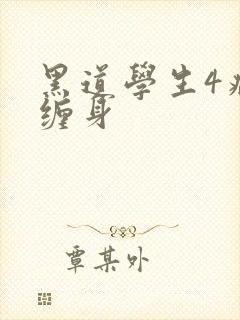 黑道學生4
缠身
覃某外